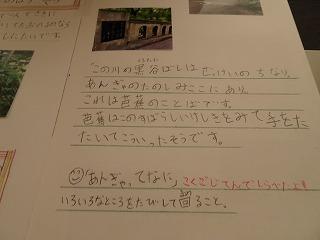 したいです。
くろたに
「この川の黒谷ばしは ぜっけいの ちなり。
あんぎゃのたのしみここに あり。
これは芭蕉のことばです。
芭蕉はこのすばらしいけしきをみて手をた
たいてこういったそうです。
「あんぎゃ」ってなに」 こくごじてんでしらべたよ!
いろいろなところをたびして回ること。